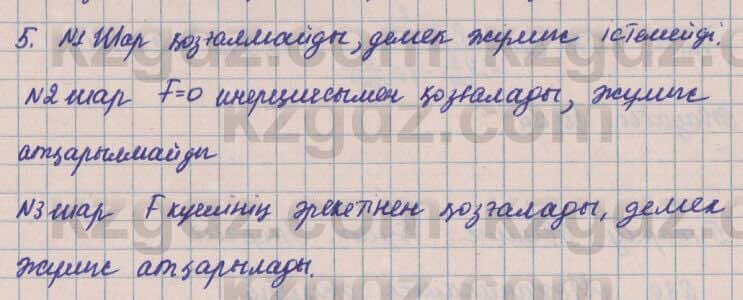 5. №1 Шар қозғалмайды, демек жұмыс істемейді.
№2 шар F=0 инерциясымен қозғалады, жұмыс
атқарылмайды
№3 шар F күшінің әрекетінен қозғалады, демек
жұмыс атқарылады.
kzgdz.com